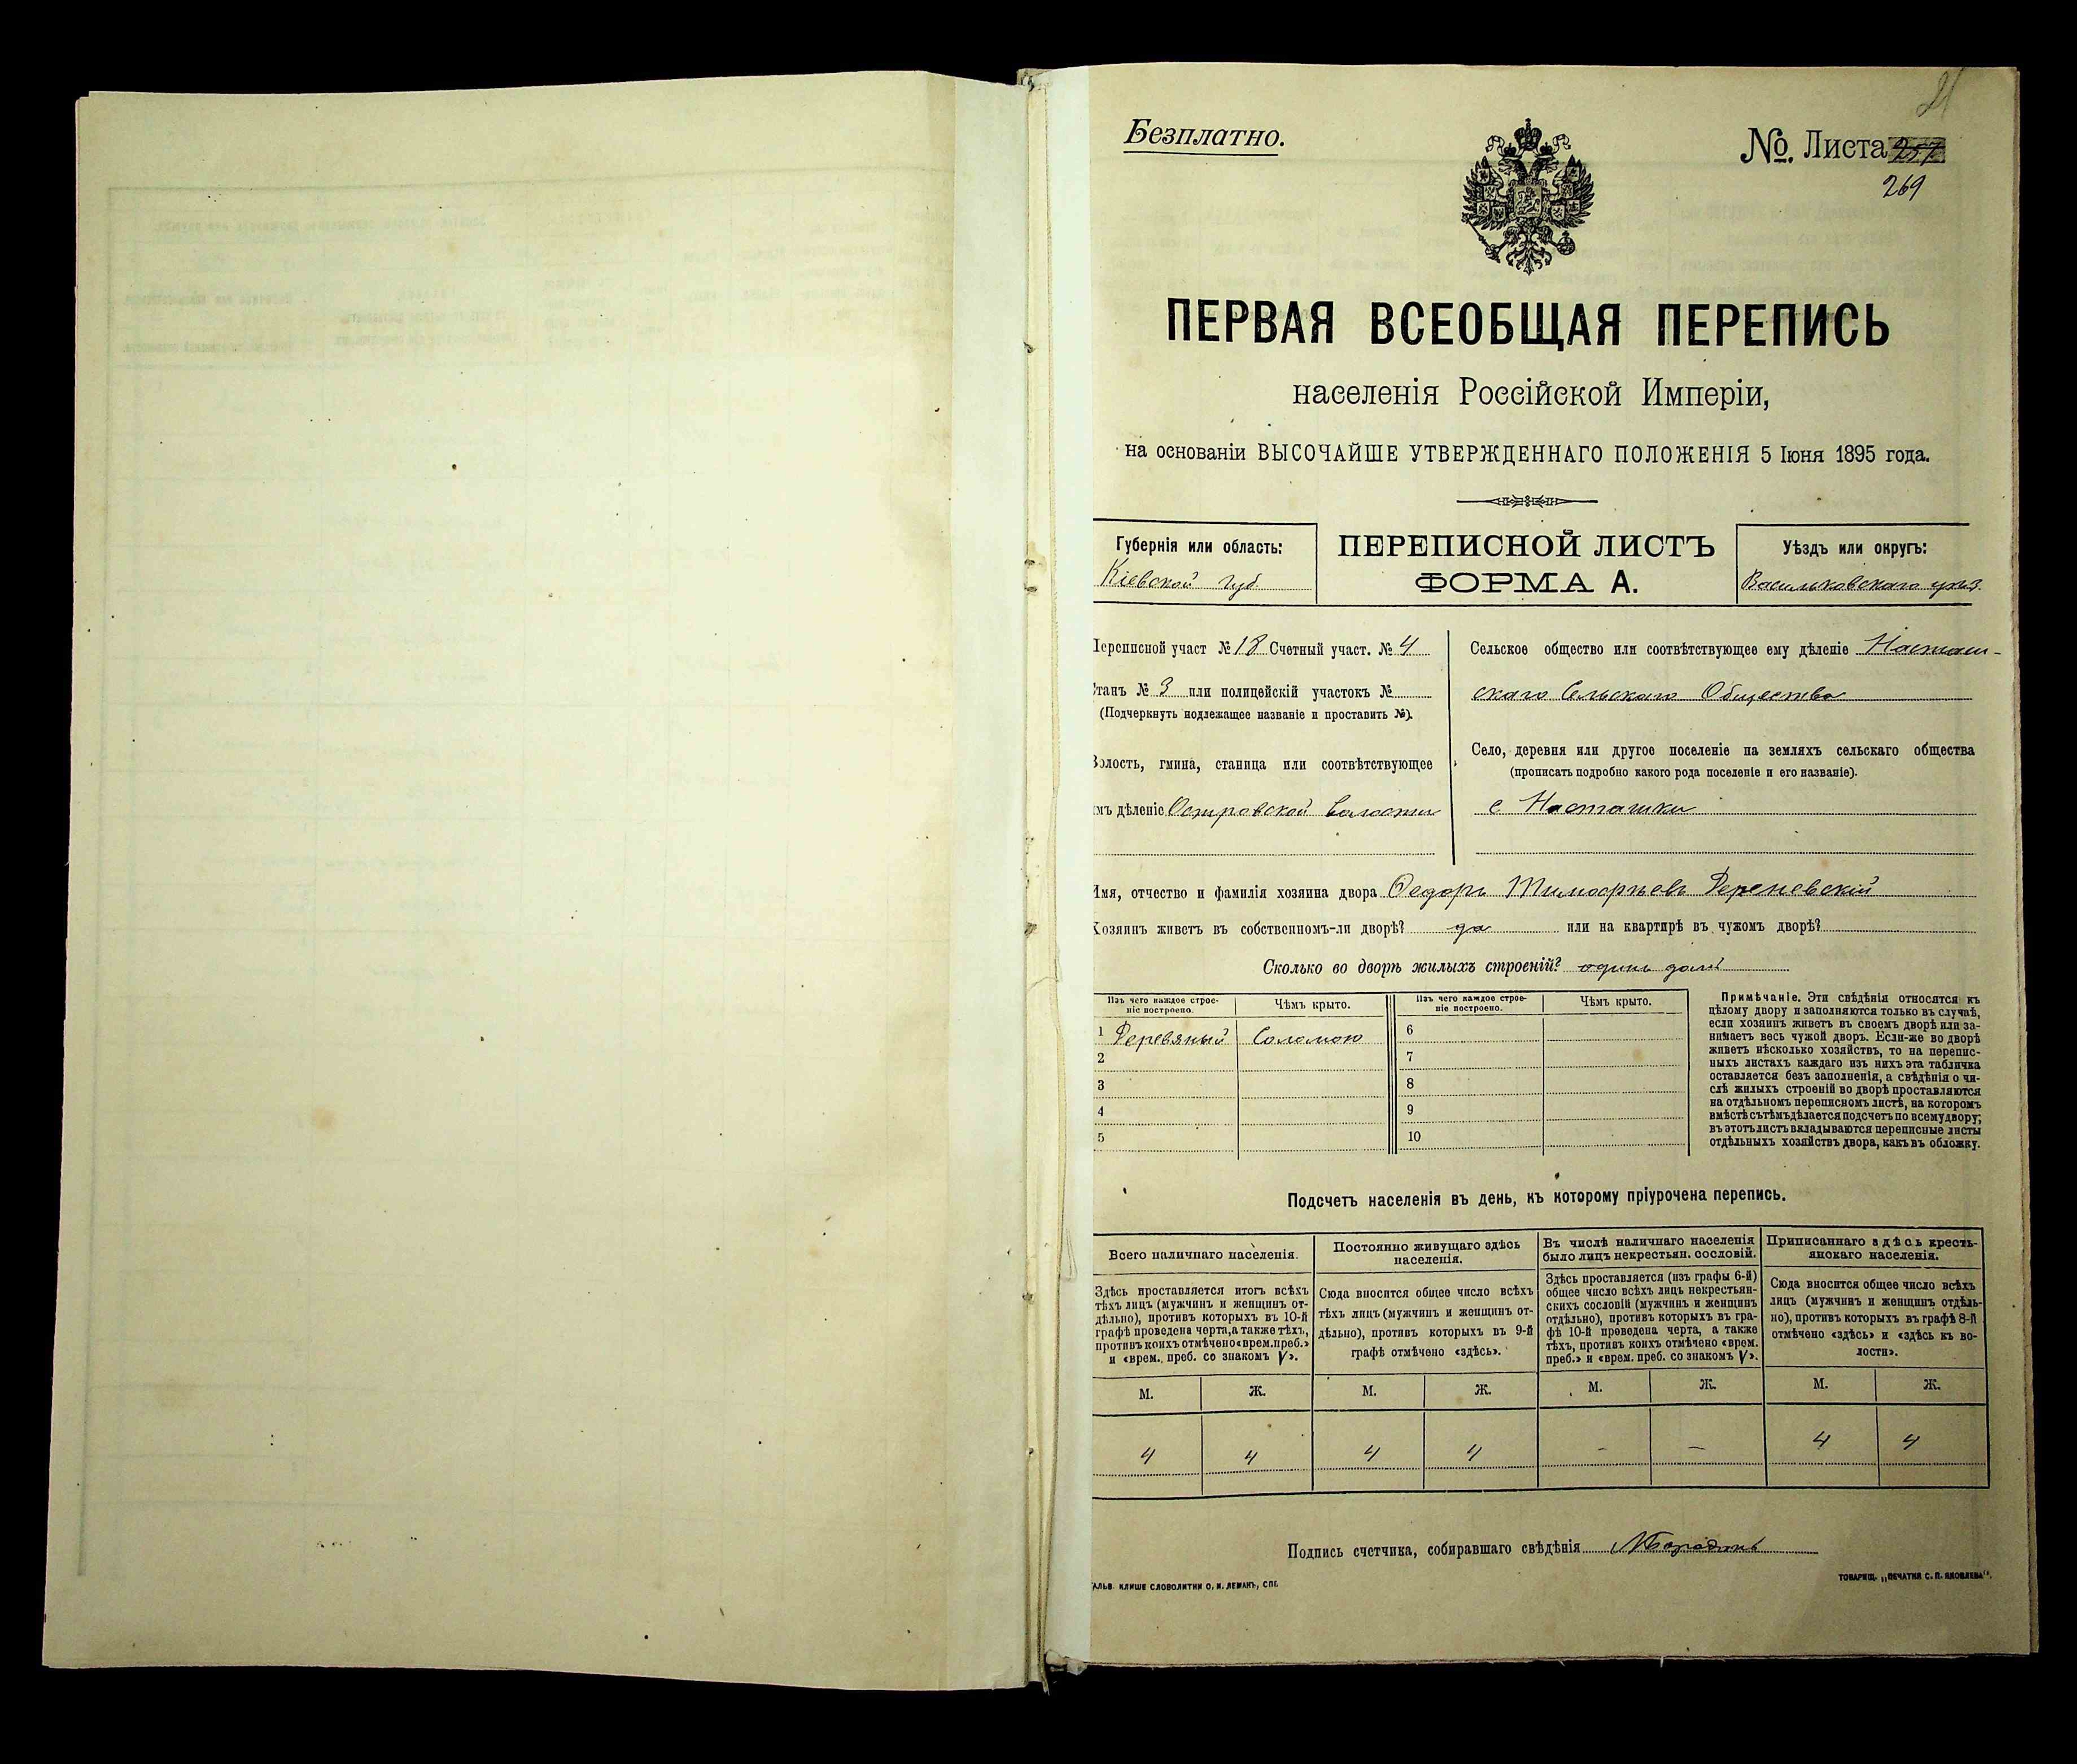 21
Безплатно.
№. Листа 257
269
ПЕРВАЯ ВСЕОБЩАЯ ПЕРЕПИСЬ
населенія Россійской Имперіи,
на основаніи ВЫСОЧАЙШЕ УТВЕРЖДЕННАГО ПОЛОЖЕНІЯ 5 Іюня 1895 года.
Губернія или область:
Кіевской губ.
ПЕРЕПИСНОЙ ЛИСТЪ
ФОРМА А.
Уѣздъ или округъ:
Васильковскаго уѣз.
Переписной участ № 18 Счетный участ. № 4
Станъ № 3 или полицейскій участокъ №
(Подчеркнуть подлежащее названіе и проставить №).
Волость, гмина, станица или соотвѣтствующее
имъ дѣленіе Островской волости
Сельское общество или соотвѣтствующее ему дѣленіе Насташ-
скаго Сельскаго Общества
Село, деревня или другое поселеніе на земляхъ сельскаго общества
(прописать подробно какого рода поселеніе и его названіе).
с Насташки
Имя, отчество и фамилія хозяина двора Федоръ Тимофѣевъ
Хозяинъ живетъ въ собственномъ-ли дворѣ? да или на квартирѣ въ чужомъ дворѣ?
Сколько во дворѣ жилыхъ строеній? одинъ домъ
Изъ чего каждое строе-
ніе построено.
Чѣмъ крыто.
Изъ чего каждое строе-
ніе построено.
Чѣмъ крыто.
1 Деревяный Соломою 6
2 7
3 8
4 9
5 10
Примѣчаніе. Эти свѣдѣнія относятся къ
цѣлому двору и заполняются только въ случаѣ,
если хозяинъ живетъ въ своемъ дворѣ или за-
нимаетъ весь чужой дворъ. Если-же во дворѣ
живетъ нѣсколько хозяйствъ, то на перепис-
ныхъ листахъ каждаго изъ нихъ эта табличка
оставляется безъ заполненія, а свѣдѣнія о чи-
слѣ жилыхъ строеній во дворѣ проставляются
на отдѣльномъ переписномъ листѣ, на которомъ
вмѣстѣ съ тѣмъ дѣлается подсчетъ по всему двору;
въ этотъ листъ вкладываются переписные листы
отдѣльныхъ хозяйствъ двора, какъ въ обложку.
Подсчетъ населенія въ день, къ которому пріурочена перепись.
Всего наличнаго населенія.
Здѣсь проставляется итогъ всѣхъ
тѣхъ лицъ (мужчинъ и женщинъ от-
дѣльно), противъ которыхъ въ 10-й
графѣ проведена черта, а также тѣхъ,
противъ коихъ отмѣчено «врем. преб.»
и «врем. преб. со знакомъ V».
Постоянно живущаго здѣсь
населенія.
Сюда вносится общее число всѣхъ
тѣхъ лицъ (мужчинъ и женщинъ от-
дѣльно), противъ которыхъ въ 9-й
графѣ отмѣчено «здѣсь».
Въ числѣ наличнаго населенія
было лицъ некрестьян. сословій.
Здѣсь проставляется (изъ графы 6-й)
общее число всѣхъ лицъ некрестьян-
скихъ сословій (мужчинъ и женщинъ
отдѣльно), противъ которыхъ въ гра-
фѣ 10-й проведена черта, а также
тѣхъ, противъ коихъ отмѣчено «врем.
преб.» и «врем. преб. со знакомъ V».
Приписаннаго здѣсь кресть-
янскаго населенія.
Сюда вносится общее число всѣхъ
лицъ (мужчинъ и женщинъ отдѣль-
но), противъ которыхъ въ графѣ 8-й
отмѣчено «здѣсь» и «здѣсь къ во-
лости».
М. Ж. М. Ж. М. Ж. М. Ж.
4 4 4 4 - - 4 4
Подпись счетчика, собиравшаго свѣдѣнія
ГАЛЬВ. КЛИШЕ СЛОВОЛИТНИ О. И. ЛЕМАНЪ, СПБ.
ТОВАРИЩ. „ПЕЧАТНЯ С. П. ЯКОВЛЕВА".